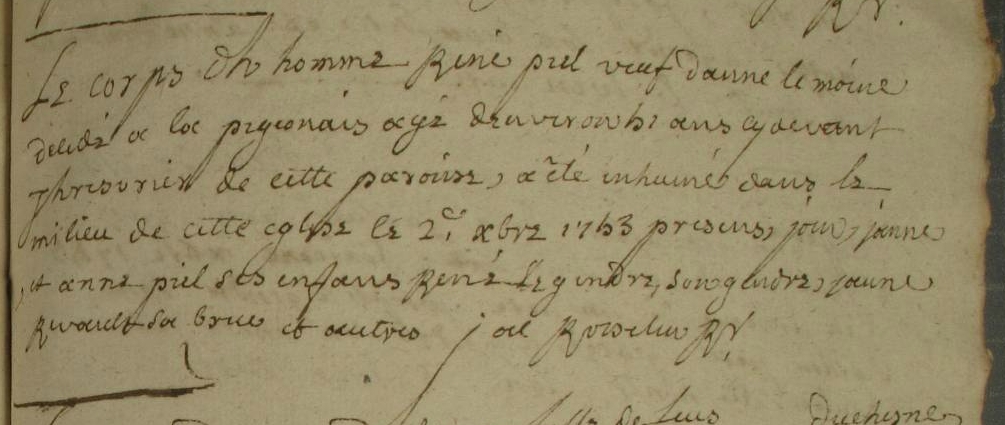 RR.
Le corps dh homme René piel veuf danne le moine
décédé a la pigeonais agé denviron 61 ans cydevant
thresorier de cette paroisse, a été inhumé dans le
milieu de cette eglise le 2.e xbre 1763 presens, janne
et anne piel ses enfans René le gendre, son gendre, janne
sa brue et autres j al RR.
fille de duchesne